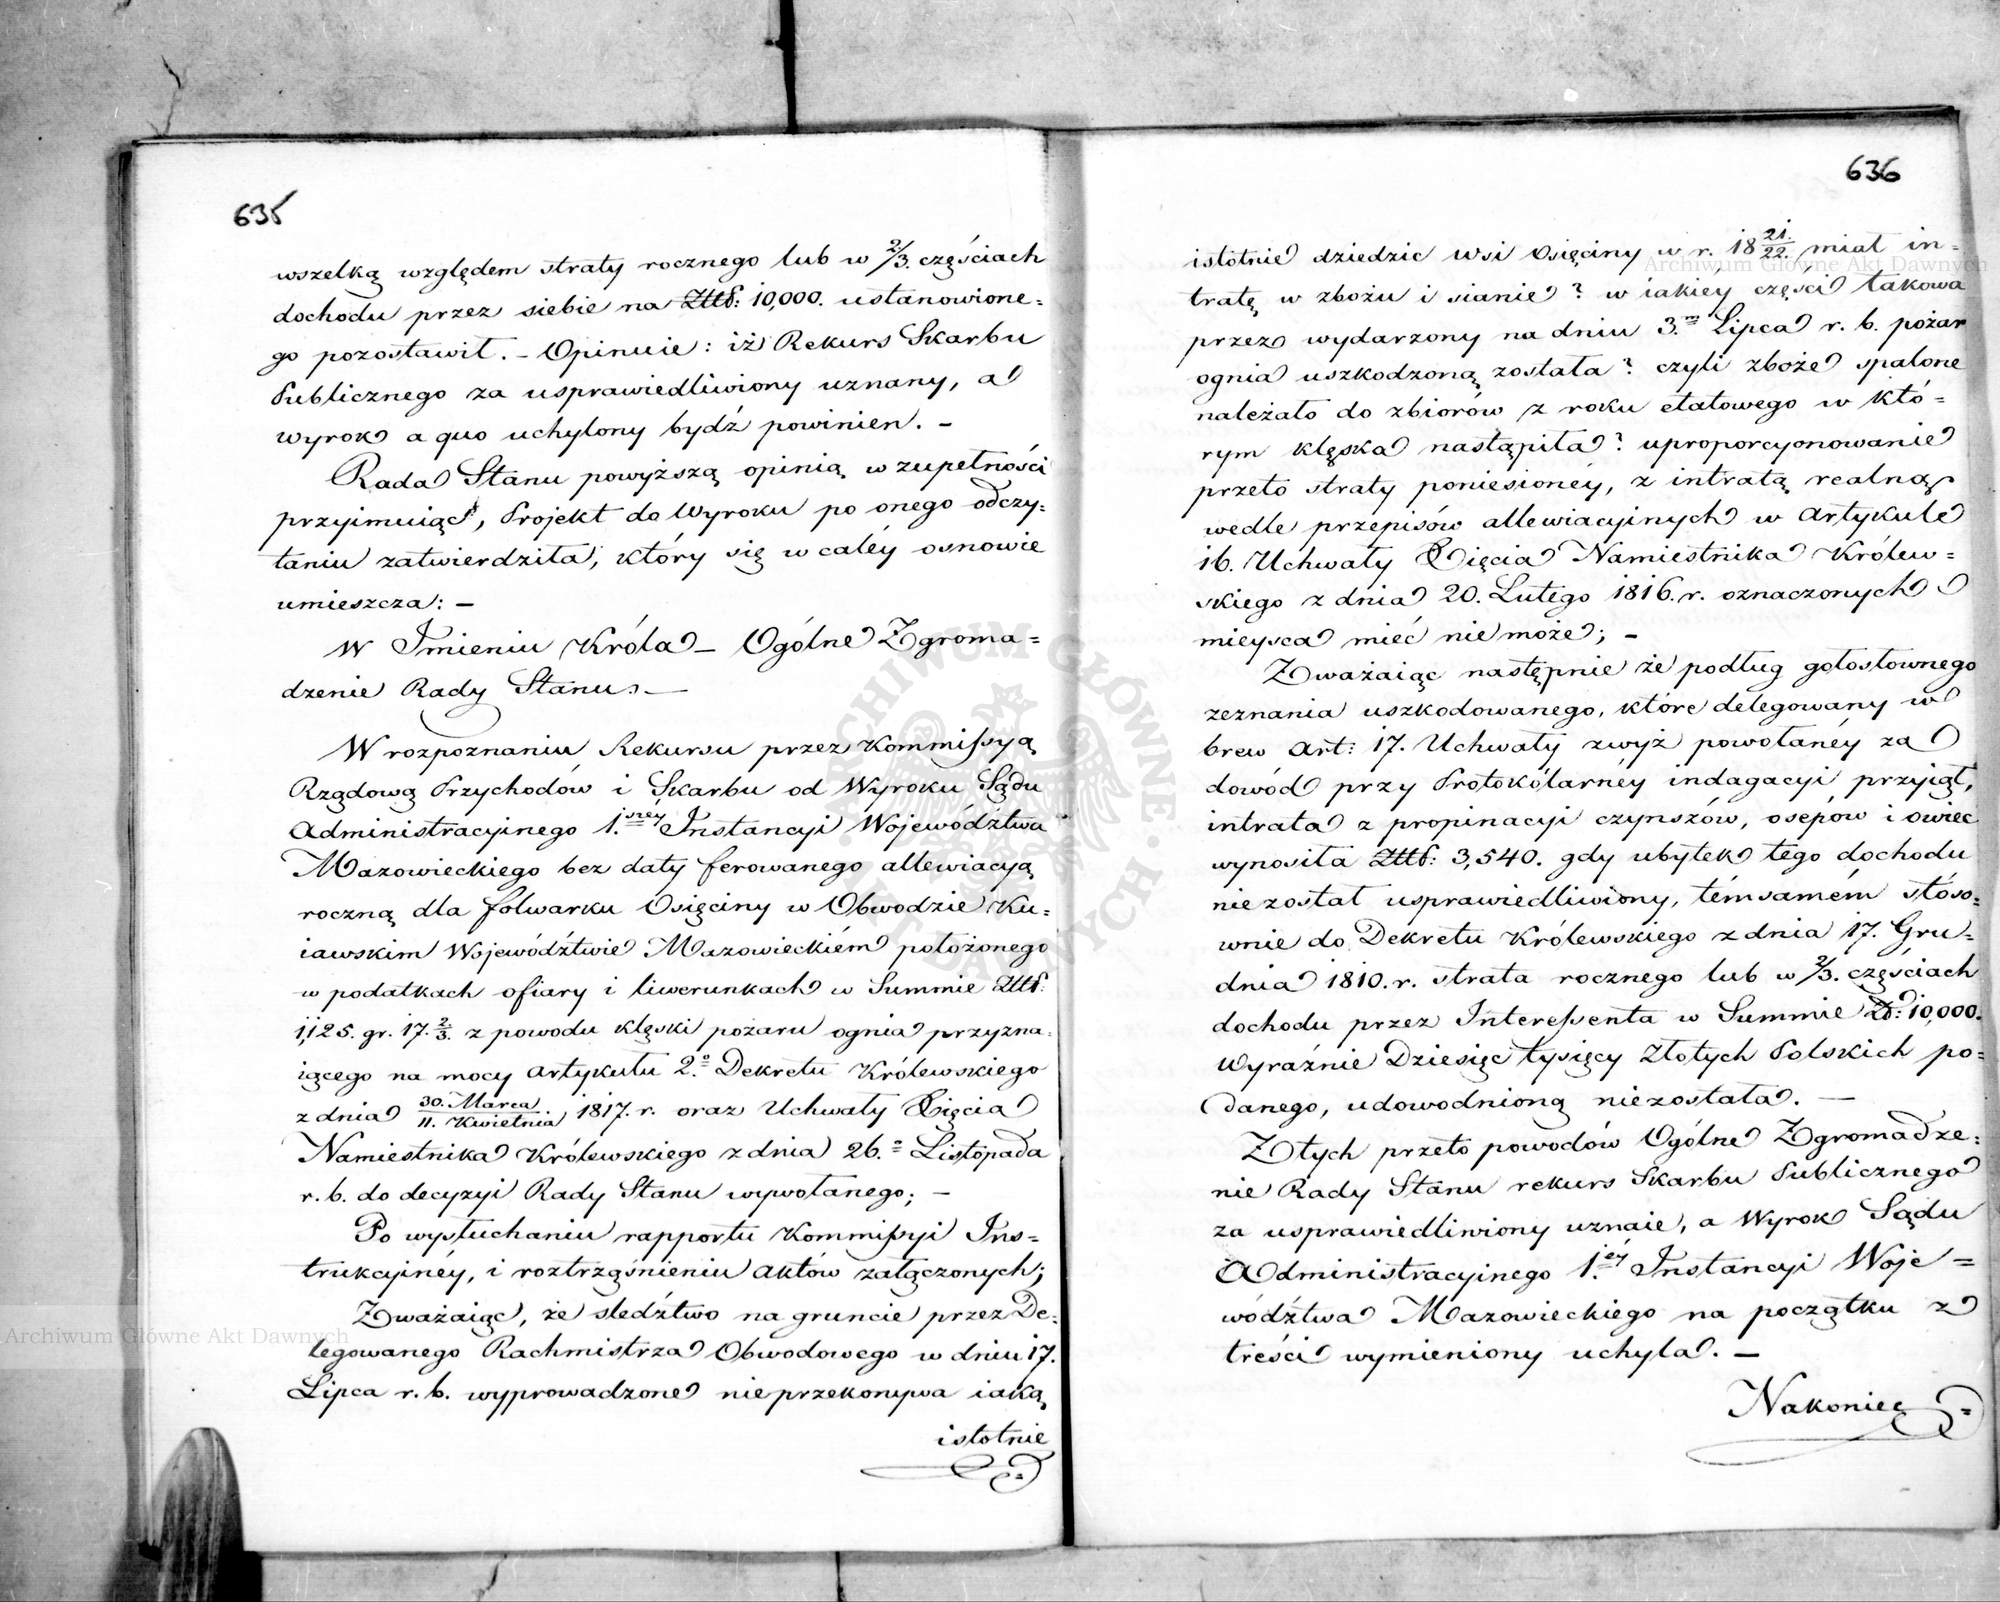 635
wszelką względem straty rocznego lub w 2/3. częściach
dochodu przez siebie na Złtt: 10,000. ustanowione=
go pozostawił. – Opinuie: iż Rekurs Skarbu
Publicznego za usprawiedliwiony uznany, a
wyrok a quo uchylony bydź powinien. –
Rada Stanu powyższą opinią w zupełności
przyimuiąc, Projekt do Wyroku po onego odczy=
taniu zatwierdziła, który się w całéy osnowie
umieszcza: –
W Imieniu Króla – Ogólne Zgroma=
dzenie Rady Stanu. –
W rozpoznaniu Rekursu przez Kommissyą
Rządową Przychodów i Skarbu od Wyroku Sądu
Administracyjnego 1.széy Instancyi Województwa
Mazowieckiego bez daty ferowanego allewiacyą
roczną dla folwarku Osięciny w Obwodzie Ku=
iawskim Województwie Mazowieckiém położonego
w podatkach ofiary i liwerunkach w Summie Złtt:
1,125. gr. 17. 2/3. z powodu klęski pożaru ognia przyzna=
iącego na mocy artykułu 2.° Dekretu Królewskiego
z dnia 30. Marca/11. Kwietnia 1817. r. oraz Uchwały Xięcia
Namiestnika Królewskiego z dnia 26.° Listopada
r. b. do decyzyi Rady Stanu wywołanego; –
Po wysłuchaniu rapportu Kommissyi Ins=
trukcyinéy, i roztrząśnieniu aktów załączonych;
Zważaiąc, że sledźtwo na gruncie przez De=
legowanego Rachmistrza Obwodowego w dniu 17.
Lipca r. b. wyprowadzone nie przekonywa iaką
istotnie
636
istotnie dziedzic wsi Osięciny w r. 18 21./22. miał in=
tratę w zbożu i sianie? w iakiey części takowa
przez wydarzony na dniu 3.m Lipca r. b. pożar
ognia uszkodzoną została? czyli zboże spalone
należało do zbiorów z roku etatowego w któ=
rym klęska nastąpiła? uproporcyonowanie
przeto straty poniesionéy, z intratą realną
wedle przepisów allewiacyinych w artykule
16. Uchwały Xięcia Namiestnika Królew=
skiego z dnia 20. Lutego 1816. r. oznaczonych
mieysca mieć nie może; –
Zważaiąc następnie że podług gołosłownego
zeznania uszkodowanego, które delegowany w
brew art: 17. Uchwały zwyż powołanéy za
dowód przy Protokólarnéy indagacyi przyjął,
intrata z propinacyi czynszów, osepów i owiec
wynosiła Złtt: 3,540. gdy ubytek tego dochodu
nie został usprawiedliwiony, témsamém stóso=
wnie do Dekretu Królewskiego z dnia 17. Gru=
dnia 1810. r. strata rocznego lub w 2/3. częściach
dochodu przez Interessenta w Summie Zł: 10,000.
Wyraźnie Dziesięć tysięcy Złotych Polskich po=
danego, udowodnioną niezostała. –
Z tych przeto powodów Ogólne Zgromadze=
nie Rady Stanu rekurs Skarbu Publicznego
za usprawiedliwiony uznaie, a Wyrok Sądu
Administracyjnego 1.éy Instancyi Woje=
wództwa Mazowieckiego na początku z
treści wymieniony uchyla. –
Nakoniec
ARCHIWUM GŁÓWNE AKT DAWNYCH
Archiwum Główne Akt Dawnych
Archiwum Główne Akt Dawnych